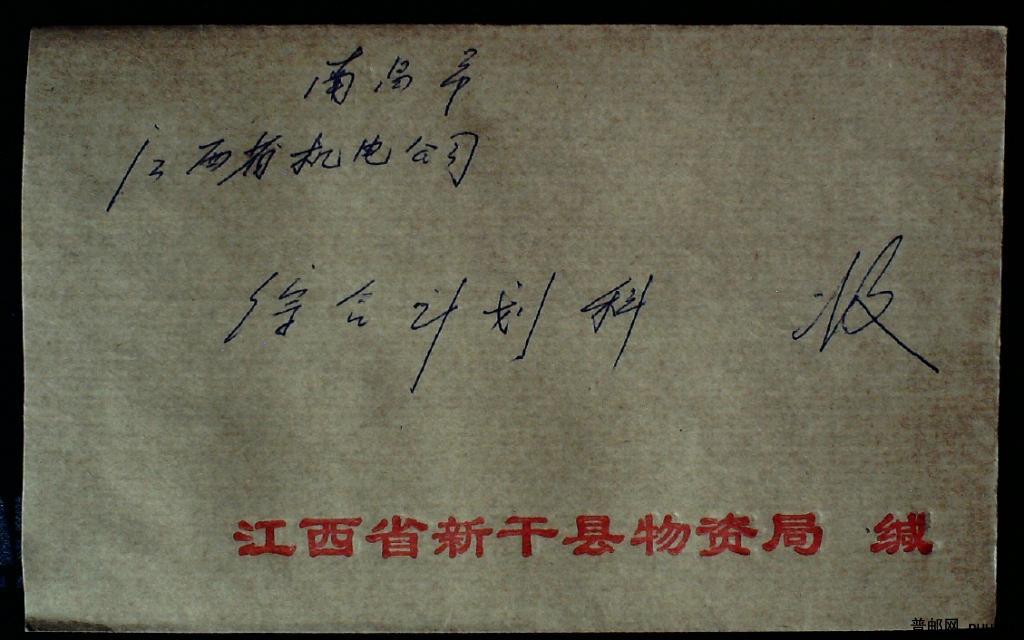 南昌市
江西省机电公司
综合计划科 收
江西省新干县物资局 缄
普邮网